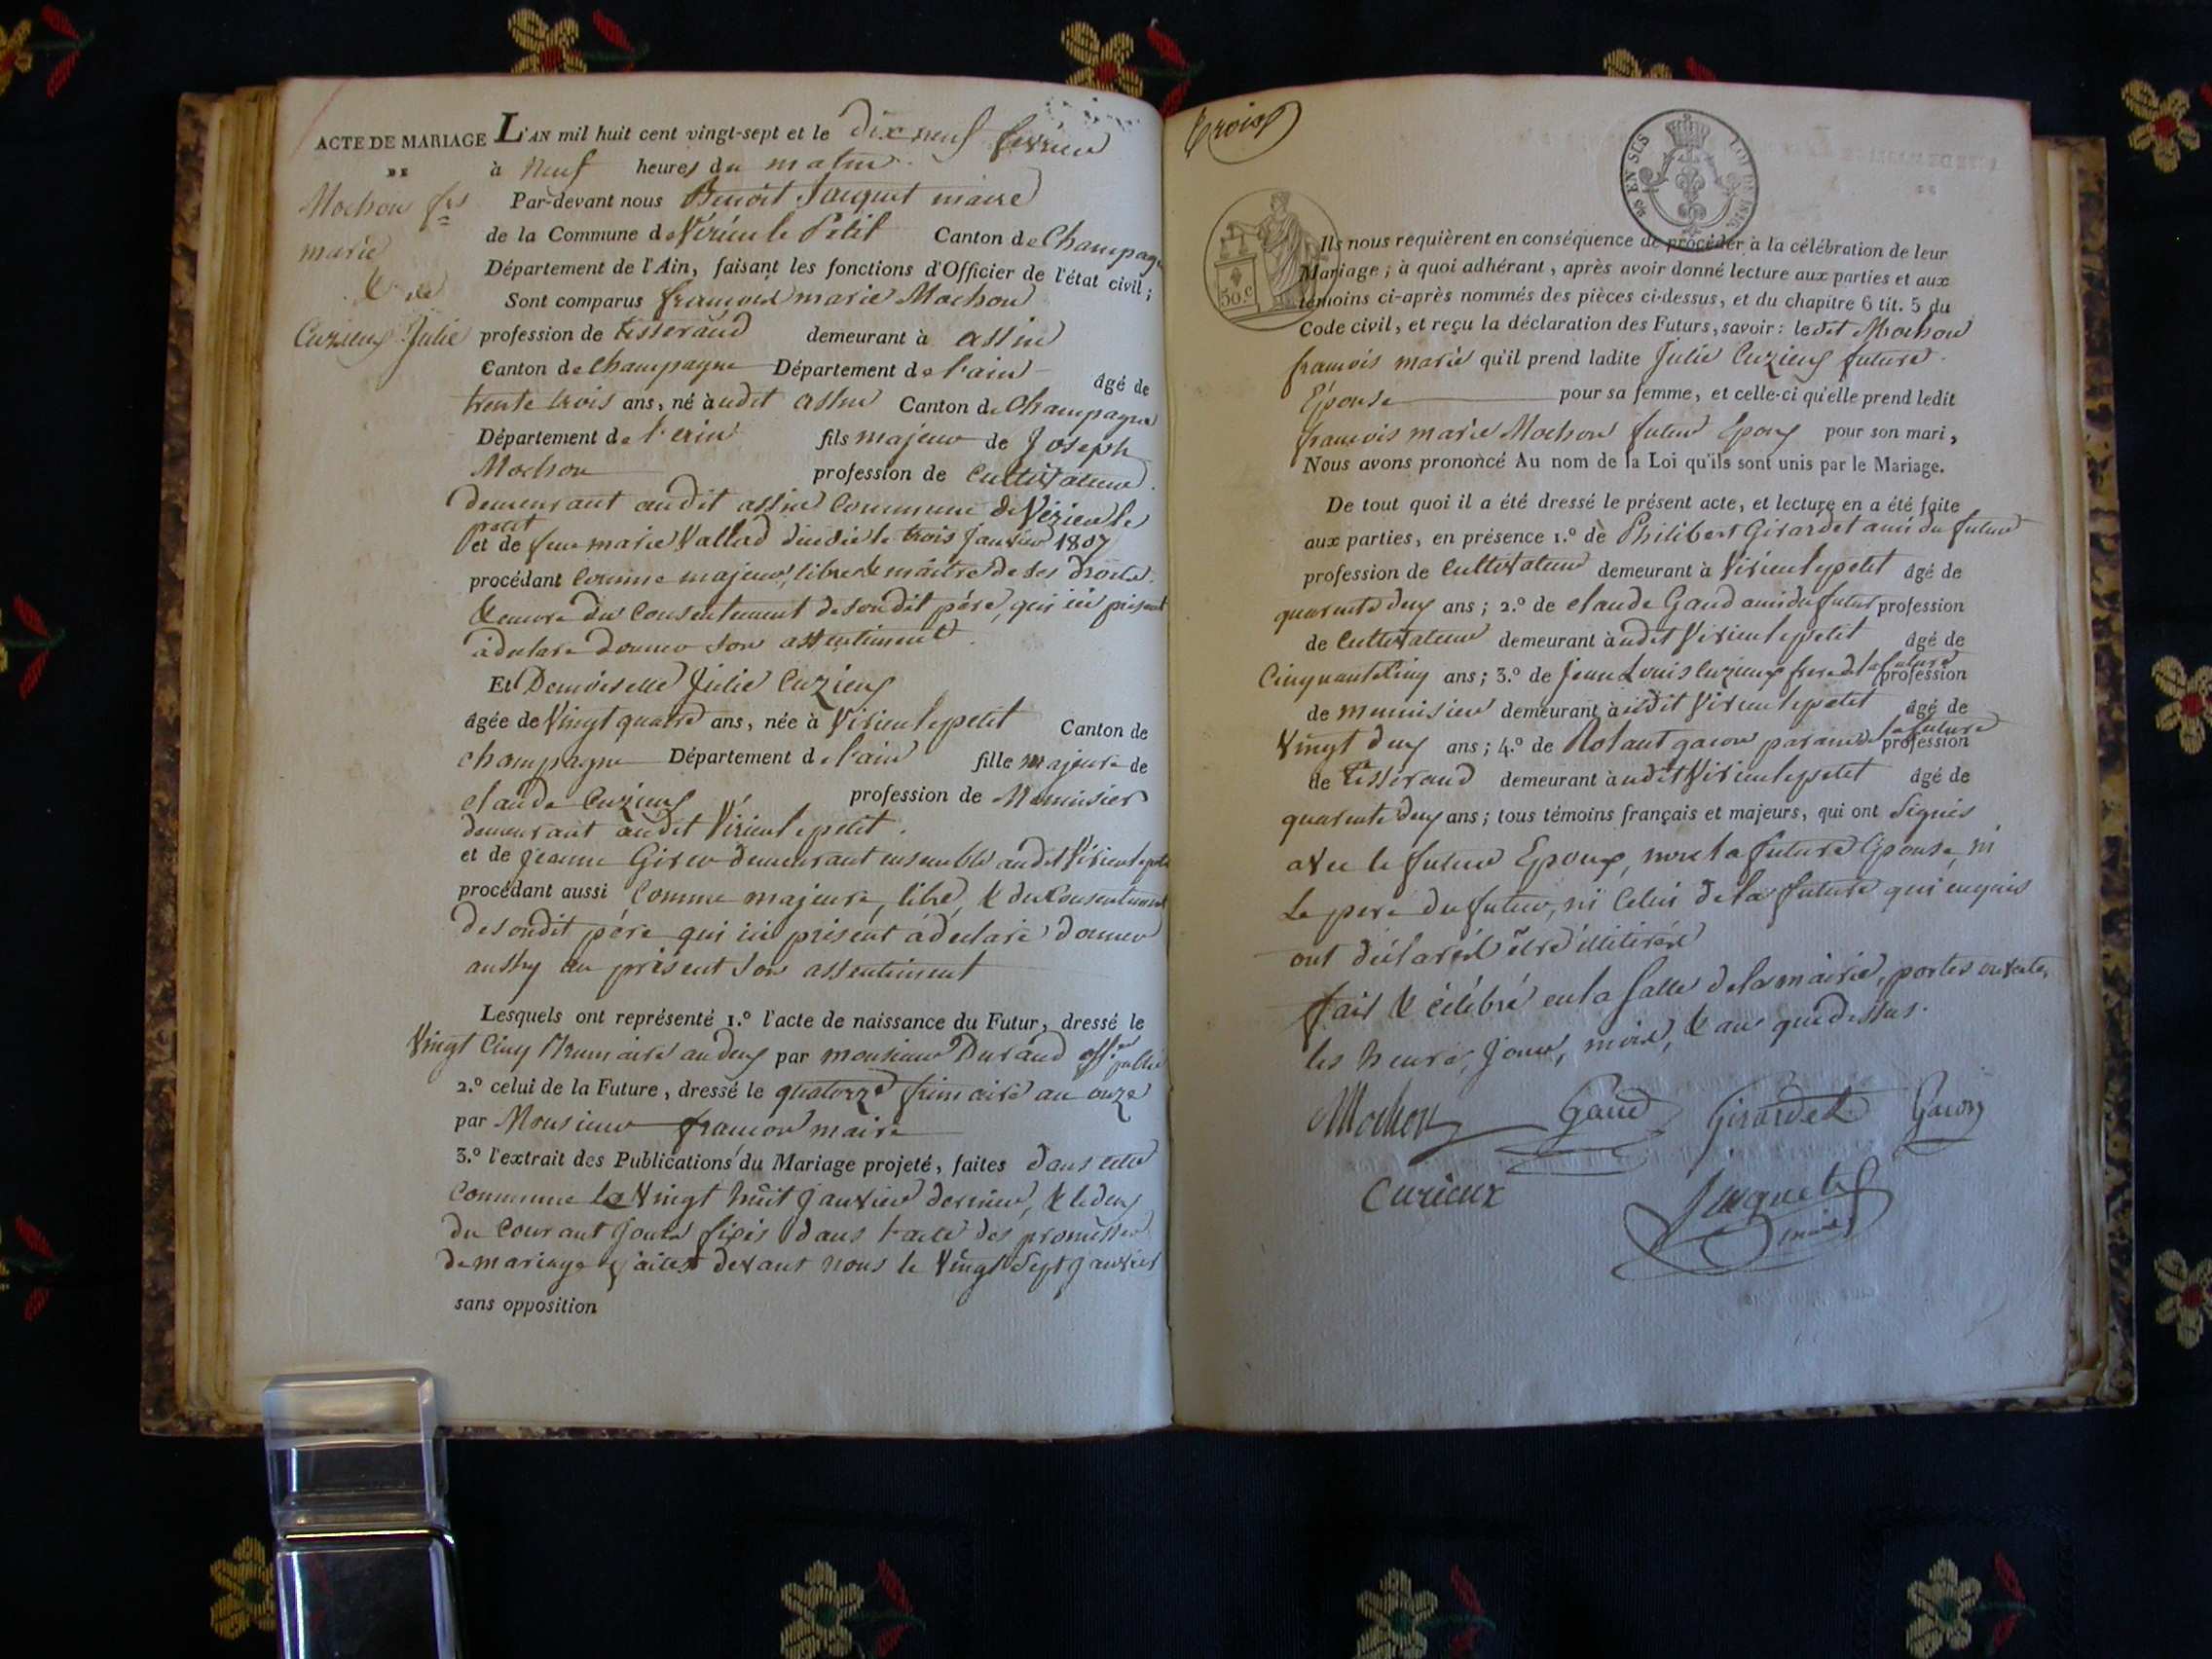 ACTE DE MARIAGE
DE
Mochon frs
marie
& de
Cuzieux Julie
L'AN mil huit cent vingt-sept et le dix neuf fevrier
à neuf heures du matin
Par-devant nous Benoit Jacquet maire
de la Commune de Virieu le Petit Canton de Champagne
Département de l'Ain, faisant les fonctions d'Officier de l'état civil ;
Sont comparus françois marie Mochon
profession de tisserand demeurant à assin
Canton de Champagne Département de l'ain âgé de
trente trois ans, né audit assin Canton de Champagne
Département de l'ain fils majeur de Joseph
Mochon profession de Cultivateur
demeurant audit assin Commune de Virieu le
petit
et de feue marie Vallod décédée le trois Janvier 1807
procédant Comme majeur, libre & maitre de ses droits
& encore du Consentement de son dit père, qui ici présent
à déclaré donner son assentiment
Et Demoiselle Julie Cuzieux
âgée de Vingt quatre ans, née à Virieu le petit Canton de
champagne Département de l'ain fille majeure de
claude Cuzieux profession de Menuisier
demeurant audit Virieu le petit
et de jeanne Girer demeurant ensemble audit Virieu le petit
procédant aussi Comme majeure, libre, & du Consentement
de son dit père qui ici présent à déclaré donner
aussy au présent son assentiment
Lesquels ont représenté 1.º l'acte de naissance du Futur, dressé le
Vingt Cinq Brumaire an deux par monsieur Durand off.er public
2.º celui de la Future, dressé le quatorze frimaire an onze
par Monsieur françon maire
3.º l'extrait des Publications du Mariage projeté, faites dans cette
Commune le Vingt huit Janvier dernier, & le deux
du Courant Jours fixés dans l'acte des promesses
de mariage faites devant nous le Vingt Sept Janvier
sans opposition
trois
EN SUS LOI DE
50.c
Ils nous requièrent en conséquence de procéder à la célébration de leur
Mariage ; à quoi adhérant, après avoir donné lecture aux parties et aux
témoins ci-après nommés des pièces ci-dessus, et du chapitre 6 tit. 5 du
Code civil, et reçu la déclaration des Futurs, savoir : ledit Mochon
françois marie qu'il prend ladite Julie Cuzieux future
Epouse pour sa femme, et celle-ci qu'elle prend ledit
françois marie Mochon futur Epoux pour son mari,
Nous avons prononcé Au nom de la Loi qu'ils sont unis par le Mariage.
De tout quoi il a été dressé le présent acte, et lecture en a été faite
aux parties, en présence 1.º de Philibert Girardet ami du futur
profession de Cultivateur demeurant à Virieu le petit âgé de
quarante deux ans ; 2.º de claude Gaud ami du futur profession
de Cultivateur demeurant audit Virieu le petit âgé de
Cinquante Cinq ans ; 3.º de Jean Louis Cuzieux frere de la future profession
de menuisier demeurant audit Virieu le petit âgé de
Vingt deux ans ; 4.º de Rolant gacon parain de la future profession
de Tisserand demeurant audit Virieu le petit âgé de
quarante deux ans ; tous témoins français et majeurs, qui ont signés
avec le futur Epoux, non la future Epouse, ni
Le pere du futur, ni Celui de la future qui enquis
ont déclarés être illitérés
fait & célébré en la salle de la mairie, portes ouvertes,
les heure, Jour, mois, & an que dessus.
Mochon Gaud Girardet Gacon
Curieux Jacquet
maire